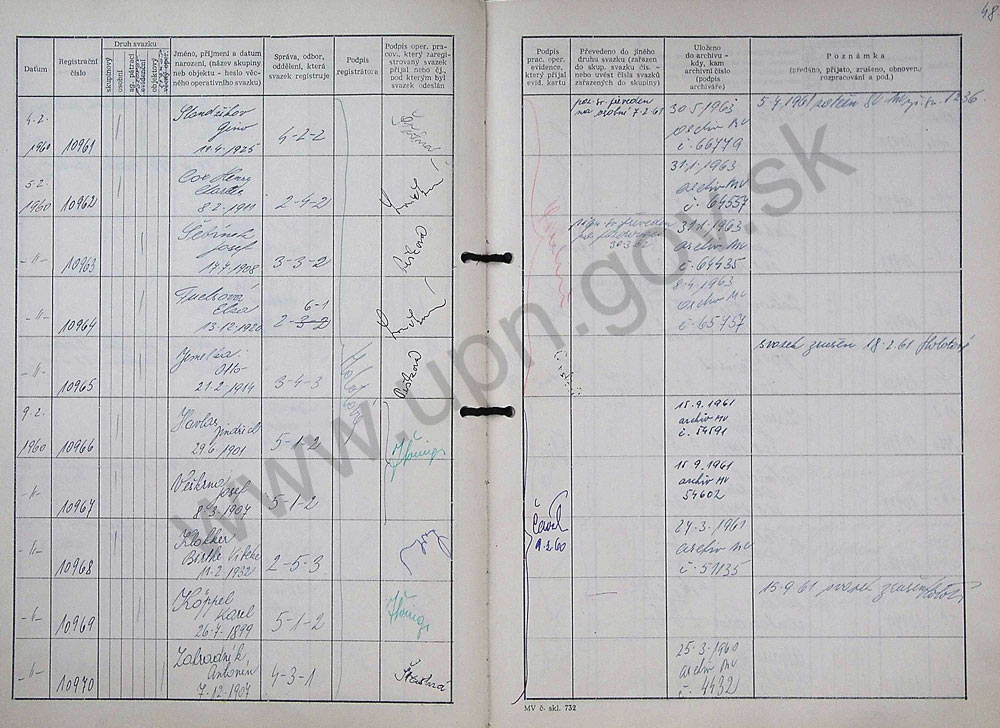 48
Datum
Registrační
číslo
Druh svazku
skupinový
osobní
ag. pátrací
evidenční
objektový
Jméno, příjmení a datum
narození, (název skupiny
neb objektu - heslo věc-
ného operativního svazku)
Správa, odbor,
oddělení, která
svazek registruje
Podpis
registrátora
Podpis oper. pra-
cov., který zaregi-
strovaný svazek
přijal nebo čj.,
pod kterým byl
svazek odeslán
Podpis
prac. oper.
evidence,
který přijal
evid. kartu
Převedeno do jiného
druhu svazku (zařazen
do skup. svazku čís. -
nebo uvést čísla svazků
zařazených do skupiny)
Uloženo
do archivu -
kdy, kam
archivní číslo
(podpis
archiváře)
Poznámka
(předáno, přijato, zrušeno, obnoveno,
rozpracování a pod.)
4.2.
1960
10961
Gino
10.4.1925
4-2-2
převeden
na osobní 7-2-61
30.5.1963
archiv MV
č. 66779
5.4.1961
5.2.
1960
10962
Cox Henry
8.2.1911
2-4-2
31.1.1963
archiv MV
č. 64557
-"-
10963
Josef
17.7.1908
3-3-2
převeden
30.3.62
31.1.1963
archiv MV
č. 64435
-"-
10964
Fuchsová
Elsa
13.12.1920
6-1
2-3-2
8.4.1963
archiv MV
č. 65757
-"-
10965
Jemelka
Otto
21.2.1914
3-4-3
svazek zrušen 18.2.61
9.2.
1960
10966
Havlas
Jindřich
29.6.1901
5-1-2
15.9.1961
archiv MV
č. 54591
-"-
10967
Josef
8.3.1907
5-1-2
15.9.1961
archiv MV
54602
-"-
10968
Klokker
11.2.1932
2-5-3
9.2.60
24.3.1961
archiv MV
č. 51135
-"-
10969
Köppel
Karel
26.7.1899
5-1-2
15.9.61 svazek zrušen
-"-
10970
Zahradník
Antonín
7.12.1907
4-3-1
25.3.1960
archiv MV
č. 4432
MV č. skl. 732
www.upn.gov.sk